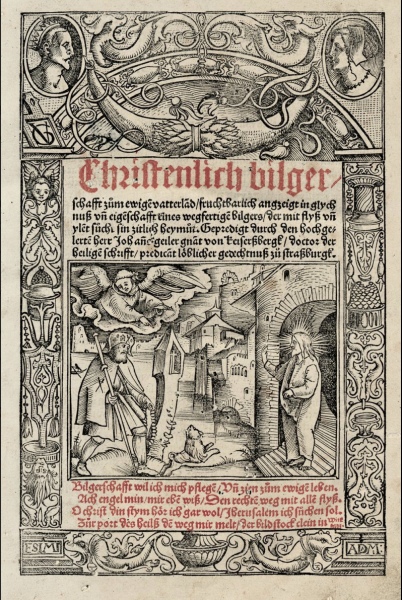 Christenlich bilger/
schafft zům ewigē vatterlād/fruchtbarlich angzeigt in glych
nuß vn̄ eigēschafft eines wegfertigē bilgers/der mit flyß vn̄
ylēt sůchē sin zitlich heymůt. Gepredigt durch den hochge-
lertē herr Joh añe geiler gnāt von Keiserßbergk/doctor der
heiligē schrifft/predicāt löblicher gedechtnuß zů straßburgk.
Bilgerschafft wil ich mich pflegē/Vn̄ ziē zům ewigē lebē.
Ach engel min/mir ebē wiß/Den rechtē weg mit allē flyß.
O christ din stym hör ich gar wol/Jherusalem ich sůchen sol.
Zůr port des heilß dē weg mit melt/der bildstock clein in
FSIM
ADM